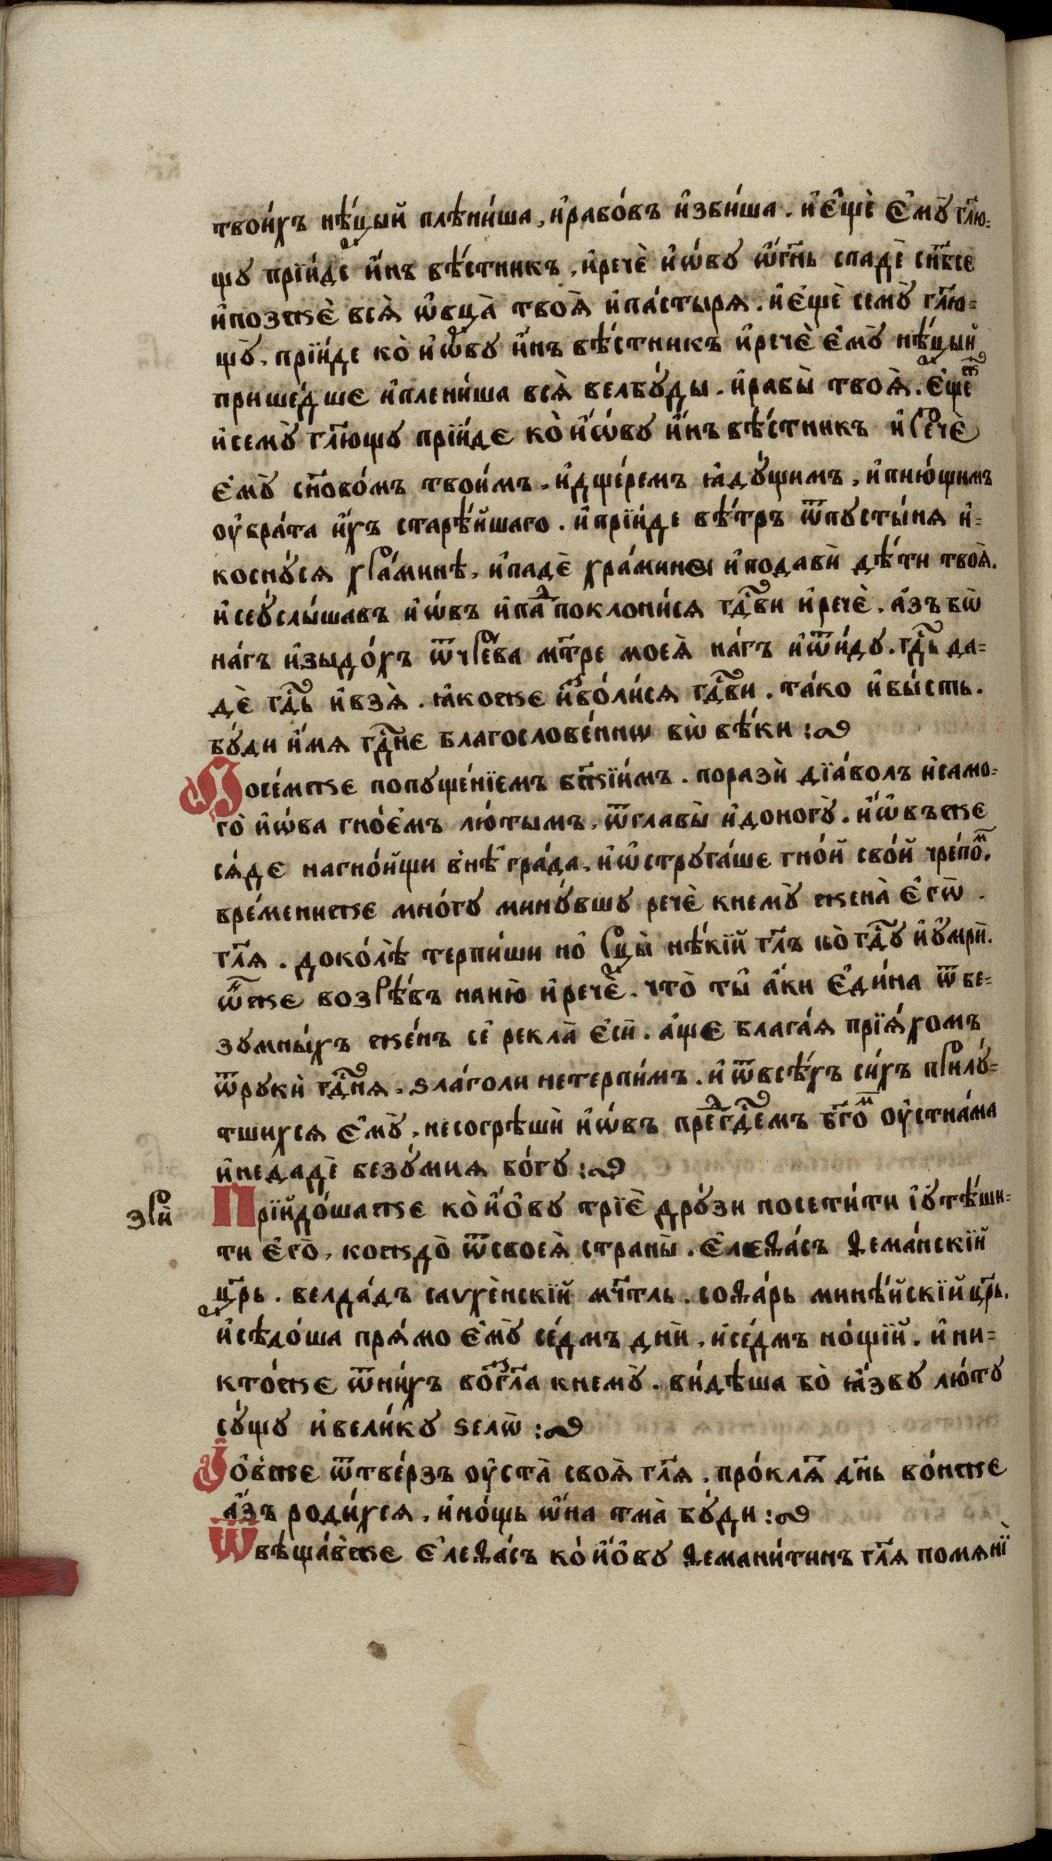 твои́хъ нѣ́цый плѣни́ша, и҆рабо́въ и҆зби́ша. и҆є҆щѐ є҆мꙋ̀ гл҃ю-
щꙋ прїи́де и҆́нъ вѣ́стникъ, и҆речѐ и҆ѡ́вꙋ ѻ҆́гнь спадѐ сн҃бсе
и҆пожжѐ всѧ̀ ѡ҆вца̀ твоѧ̀ и҆па́стырѧ. и҆є҆щѐ семꙋ̀ гл҃ю-
щꙋ̀, прїи́де ко̀ и҆ѡ́вꙋ и҆́нъ вѣ́стникъ и҆речѐ є҆мꙋ̀ нѣ́цый
прише́дше и҆плени́ша всѧ̀ велбꙋ́ды. и҆рабы̀ твоѧ̀. є҆щеж
и҆семꙋ̀ гл҃ющꙋ прїи́де ко̀ и҆ѡ́вꙋ и҆́нъ вѣ́стникъ и҆речѐ
є҆мꙋ̀ сн҃ово́мъ твои́мъ, и҆дще́ремъ ꙗ҆дꙋ́щимъ, и҆пию́щимъ
ᲂу҆бра́та и҆́хъ старѣ́йшаго. и҆прїи́де вѣ́тръ ѿпꙋсты́нѧ и҆-
коснꙋ́сѧ хра́минѣ, и҆падѐ хра́мины и҆подавѝ дѣ́ти твоѧ̀.
и҆сеꙋслы́шавъ и҆ѡ́въ и҆па́д поклони́сѧ гдⷭ҇ви и҆речѐ, а҆́зъ бѡ
на́гъ и҆зыдо́хъ ѿчре́ва мт҃ре моеѧ̀ на́гъ и҆ѿи́дꙋ. гдⷭ҇ь да-
дѐ гдⷭ҇ь и҆взѧ̀. ꙗ҆коже и҆зво́лисѧ гдⷭ҇ви. та́ко и҆бы́сть.
бꙋ́ди и҆́мѧ гдⷭ҇не благослове́ннѡ вѡ̀ вѣ́ки :
Посе́мже попꙋще́нїемъ бж҃їимъ. поразѝ дїа́волъ и҆само-
го̀ и҆ѡ́ва гно́емъ лю́тымъ, ѿглавы̀ и҆доногꙋ̀. и҆ѡ́въже
сѧ́де нагно́йщи внѣ̀ гра́да, и҆ѡ҆стрꙋга́ше гно́й сво́й чре́помⷨ.
вре́мениже мно́гꙋ минꙋ́вшꙋ речѐ кнемꙋ̀ жена̀ є҆гѡ̀.
гл҃ѧ. доко́лѣ терпи́ши но̀ рцы̀ нѣ́кїй гл҃ъ ко гдⷭ҇ꙋ и҆ᲂу҆мрѝ.
ѻ҆́нже возрѣ́въ наню̀ и҆речѐ. что̀ ты̀ а҆́ки є҆ди́на ѿ бе-
зꙋмны́хъ же́нъ сѐ рекла̀ є҆сѝ. а҆́ще блага́ѧ прїѧ́хомъ
ѿрꙋкѝ гдⷭ҇нѧ. ѕла́голи нетерпи́мъ. и҆ ѿвсѣ́хъ си́хъ прилꙋ́-
тшихсѧ є҆мꙋ̀, несогрѣшѝ и҆ѡ́въ преⷣгдⷭ҇емъ бг҃омⷨ ᲂу҆стна́ма
и҆недадѐ безꙋ́миѧ бо́гꙋ :
зри̑
Прїидо́шаже ко̀ и҆ѻ́вꙋ трїѐ дрꙋ́зи посети́ти і҆ꙋтѣ́ши-
ти є҆го̀, кождо̀ ѿсвоеѧ̀ страны̀. є҆леѳа́съ ѳема́нскїй
цр҃ь. велда́дъ саѵхе́нскїй мч҃тль. соѳа́рь минѣ́йскїй цр҃ь.
и҆сѣдо́ша прѧ́мо є҆мꙋ̀ се́дмъ дни̑, и҆се́дмъ но́щїй. и҆ ни-
кто́же ѿни́хъ во́згл҃а кнемꙋ̀. ви́дѣша бо̀ ꙗ҆́звꙋ лю́тꙋ
сꙋ́щꙋ и҆вели́кꙋ ѕелѡ̀ :
И҆ѻ́вже ѿве́рзъ ᲂу҆ста̀ своѧ̀ гл҃ѧ, про́клѧт дн҃ь во́ньже
а҆́зъ роди́хсѧ, и҆но́щь ѻ҆́на тма̀ бꙋ́ди :
Ѿвѣща́вже є҆леѳа́съ ко̀ и҆ѻ́вꙋ ѳемани́тинъ гл҃ѧ помѧнѝ